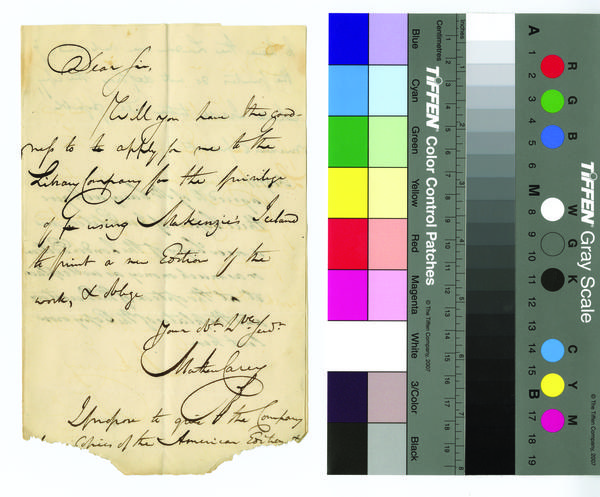 Dear Sir,
Will you have the good-
ness to to apply for me to the
Library Company for the privilege
of for using Makenzie's Iceland
to print a new Edition of the
work, & oblige
Your obt. hble Servt
Mathew Carey
I propose to give the Company
Copies of the American Edition &
Inches
Centimetres
1 2 3 4 5 6 7 8 9 10 11 12 13 14 15 16 17 18 19
Blue
Cyan
Green
Yellow
Red
Magenta
White
3/Color
Black
TIFFEN Color Control Patches
© The Tiffen Company, 2007
A 1 2 3 4 5 6 M 8 9 10 11 12 13 14 15 B 17 18 19
R
G
B
W
G
K
C
Y
M
TIFFEN Gray Scale
© The Tiffen Company, 2007